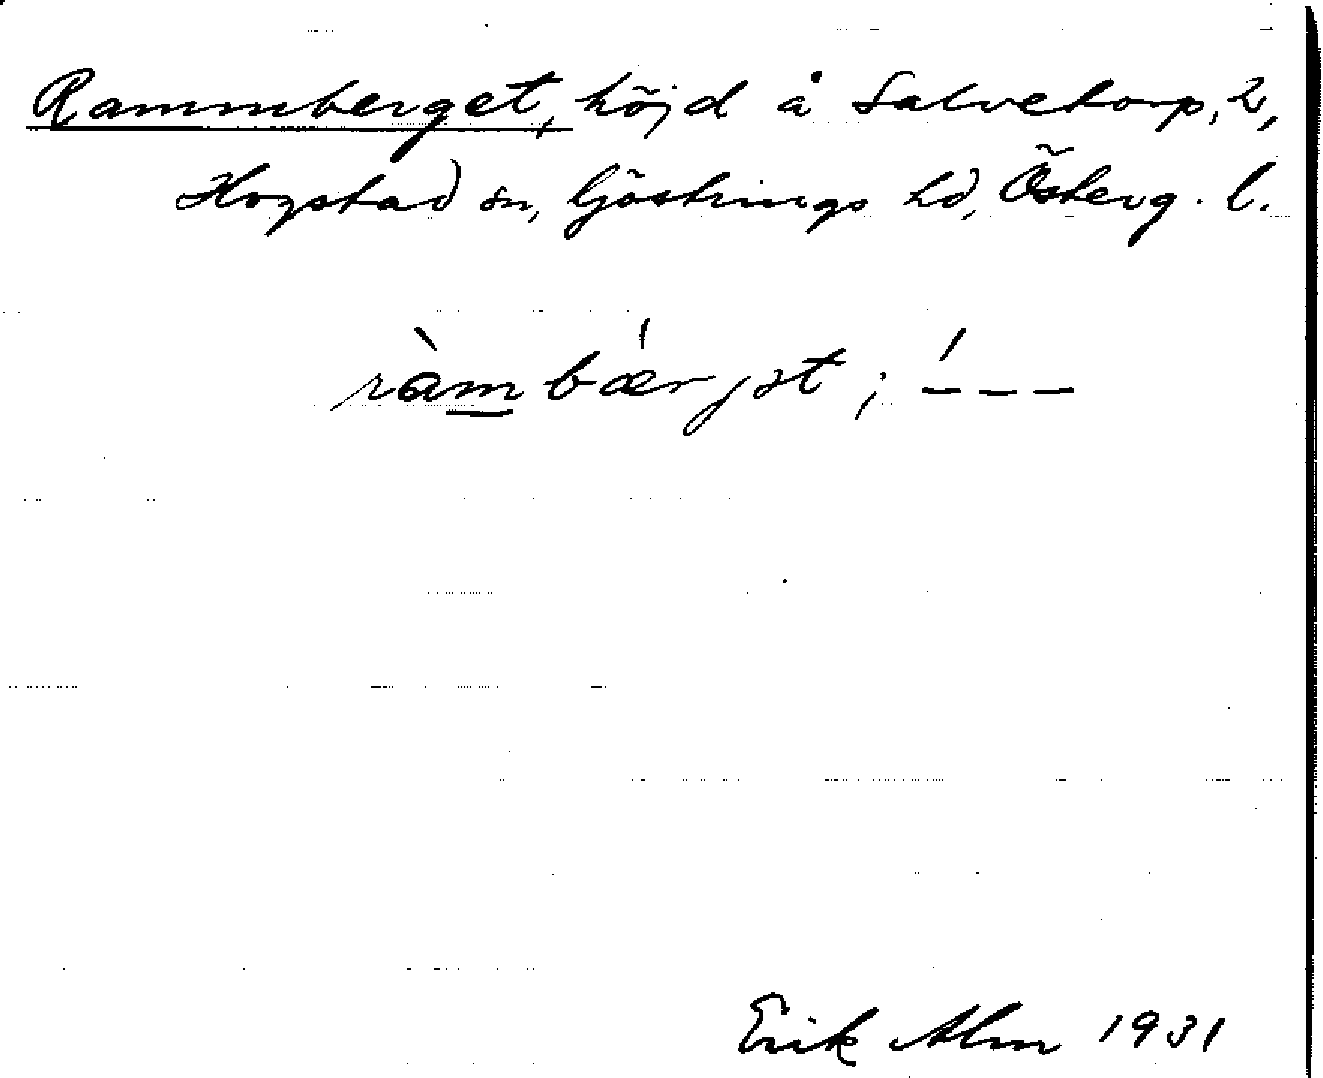 Rammberget, höjd å Salvetorp, 2,
Hogstad sn, Göstrings hd, Österg. l.
ràmbǽrjət; ́– – –
Erik Alm 1931